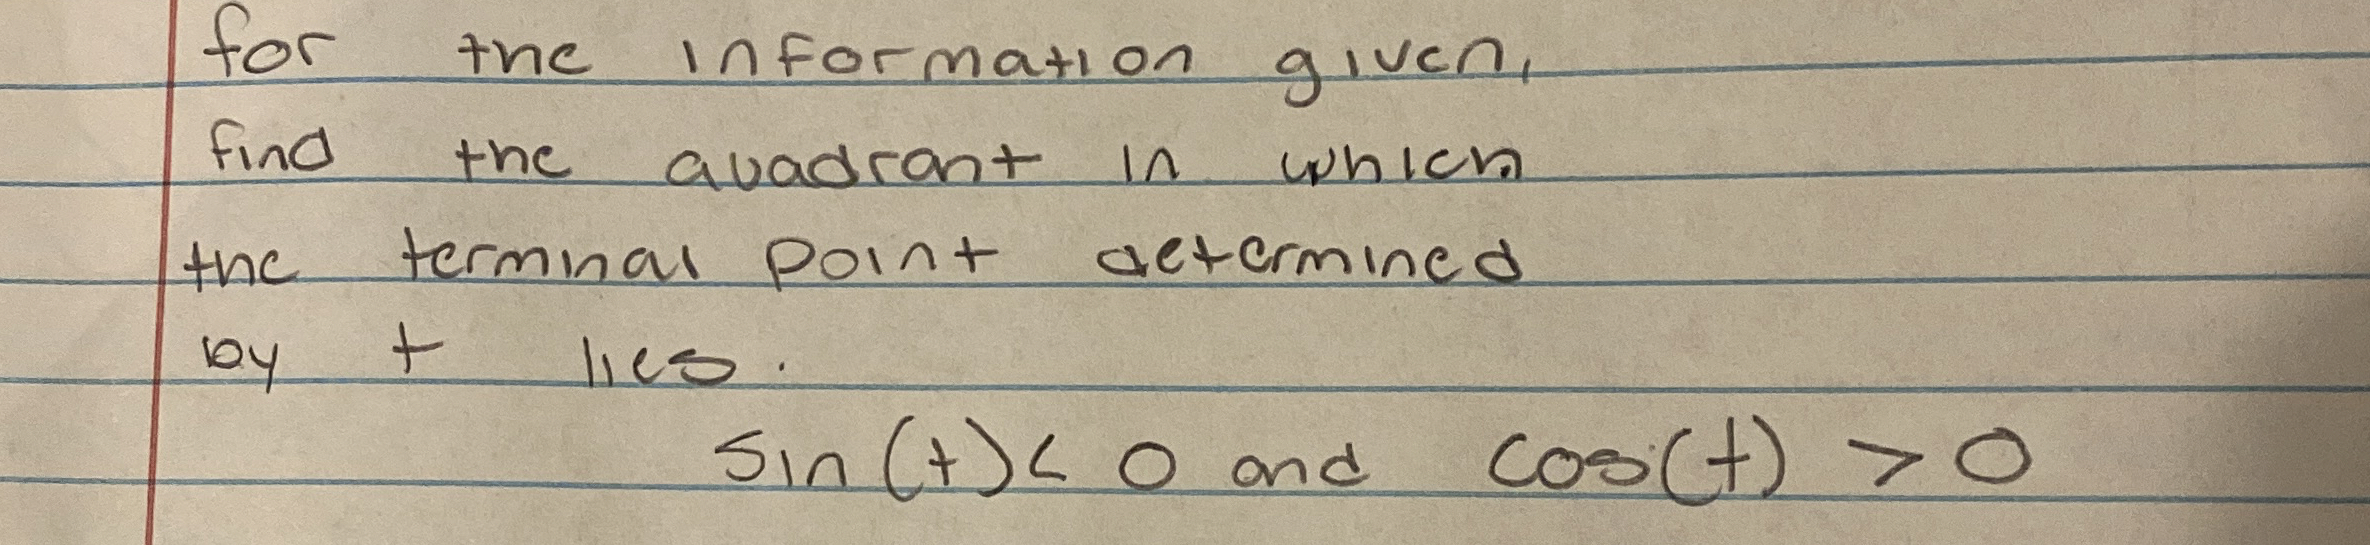 for the information given,
find the quadrant in which
the terminal point determined
by t lies.
sin(t) < 0 and cos(t) > 0